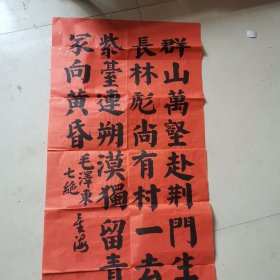 群山萬壑赴荆門生
長林彪尚有村一去
紫臺連朔漠獨留青
冢向黄昏
毛澤東
七絶